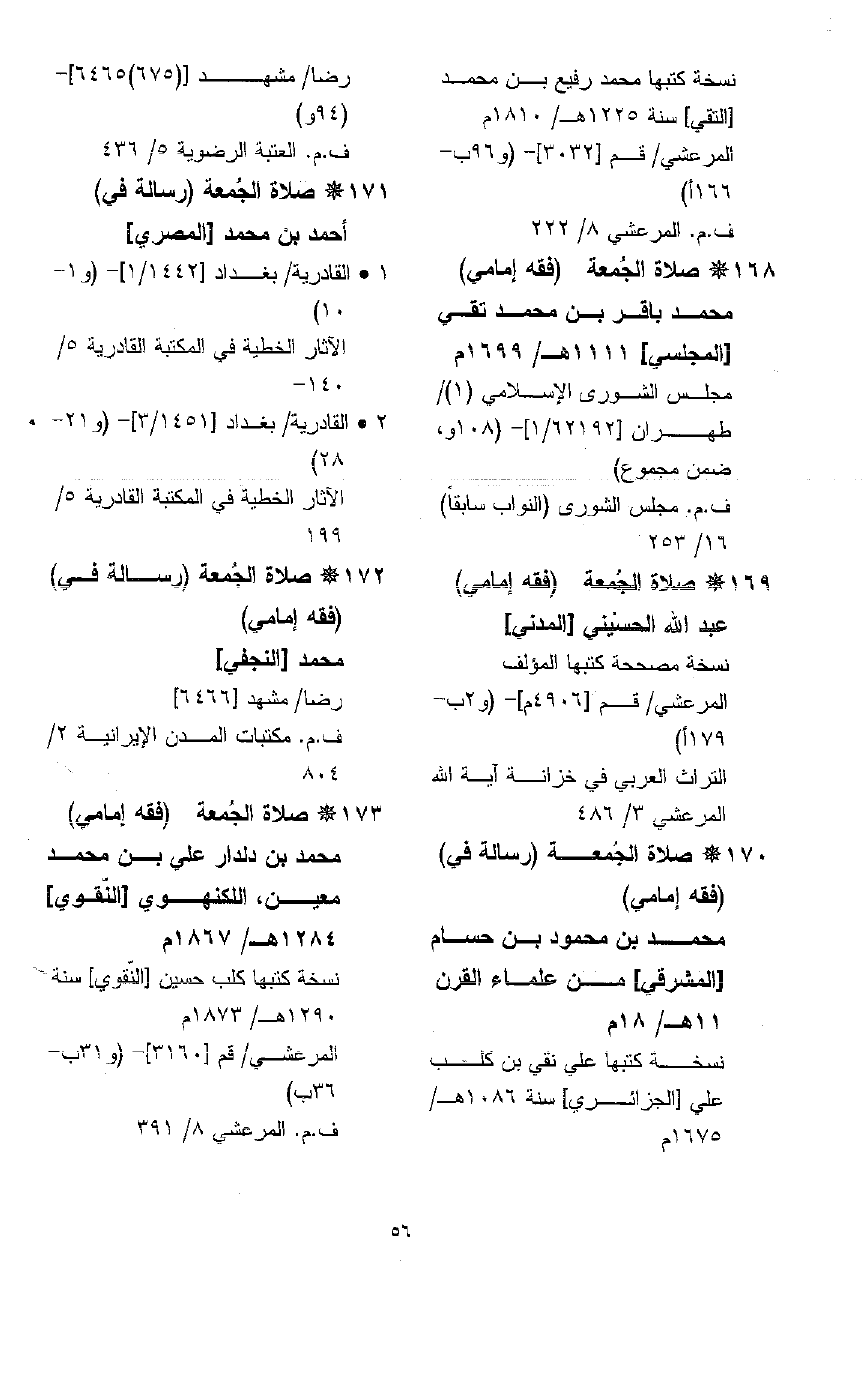 نسخة كتبها محمد رفيع بن محمد
[التقي] سنة ١٢٢٥هـ/ ١٨١٠م
المرعشي/ قم [٣٠٣٢]- (و٩٦ب-
١٦٦أ)
ف.م. المرعشي ٨/ ٢٢٢
١٦٨* صلاة الجُمعة (فقه إمامي)
محمد باقر بن محمد تقي
[المجلسي] ١١١١هـ/ ١٦٩٩م
مجلس الشورى الإسلامي (١)/
طهران [١/٦٢١٩٢]- (١٠٨و،
ضمن مجموع)
ف.م. مجلس الشورى (النواب سابقاً)
١٦/ ٢٥٣
١٦٩* صلاة الجُمعة (فقه إمامي)
عبد الله الحسيني [المدني]
نسخة مصححة كتبها المؤلف
المرعشي/ قم [٤٩٠٦م]- (و٢ب-
١٧٩أ)
التراث العربي في خزانة آية الله
المرعشي ٣/ ٤٨٦
١٧٠* صلاة الجُمعة (رسالة في)
(فقه إمامي)
محمد بن محمود بن حسام
[المشرقي] من علماء القرن
١١هـ/ ١٨م
نسخة كتبها علي نقي بن كلب
علي [الجزائري] سنة ١٠٨٦هـ/
١٦٧٥م
رضا/ مشهد [(٦٧٥)٦٤٦٥]-
(٩٤و)
ف.م. العتبة الرضوية ٥/ ٤٣٦
١٧١* صلاة الجُمعة (رسالة في)
أحمد بن محمد [المصري]
١ • القادرية/ بغداد [١/١٤٤٢]- (و١-
١٠)
الآثار الخطية في المكتبة القادرية ٥/
١٤٠-
٢ • القادرية/ بغداد [٣/١٤٥١]- (و٢١-
٢٨)
الآثار الخطية في المكتبة القادرية ٥/
١٩٩
١٧٢* صلاة الجُمعة (رسالة في)
(فقه إمامي)
محمد [النجفي]
رضا/ مشهد [٦٤٦٦]
ف.م. مكتبات المدن الإيرانية ٢/
٨٠٤
١٧٣* صلاة الجُمعة (فقه إمامي)
محمد بن دلدار علي بن محمد
معين، اللكنهوي [النّقوي]
١٢٨٤هـ/ ١٨٦٧م
نسخة كتبها كلب حسين [النّقوي] سنة
١٢٩٠هـ/ ١٨٧٣م
المرعشي/ قم [٣١٦٠]- (و٣١ب-
٣٦ب)
ف.م. المرعشي ٨/ ٣٩١
٥٦